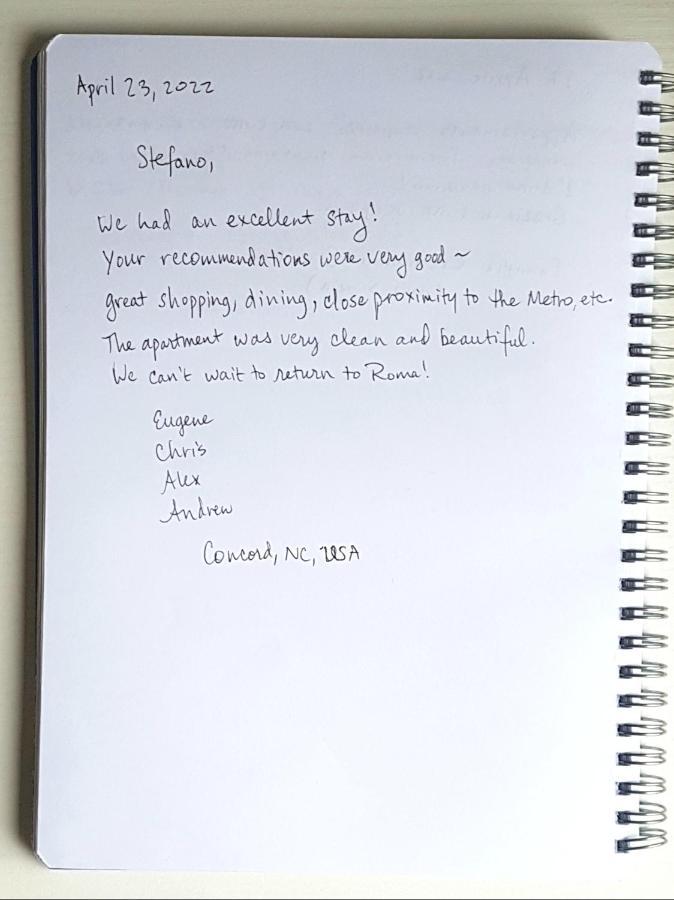 April 23, 2022
Stefano,
We had an excellent stay!
Your recommendations were very good ~
great shopping, dining, close proximity to the Metro, etc.
The apartment was very clean and beautiful.
We can't wait to return to Roma!
Eugene
Chris
Alex
Andrew
Concord, NC, USA